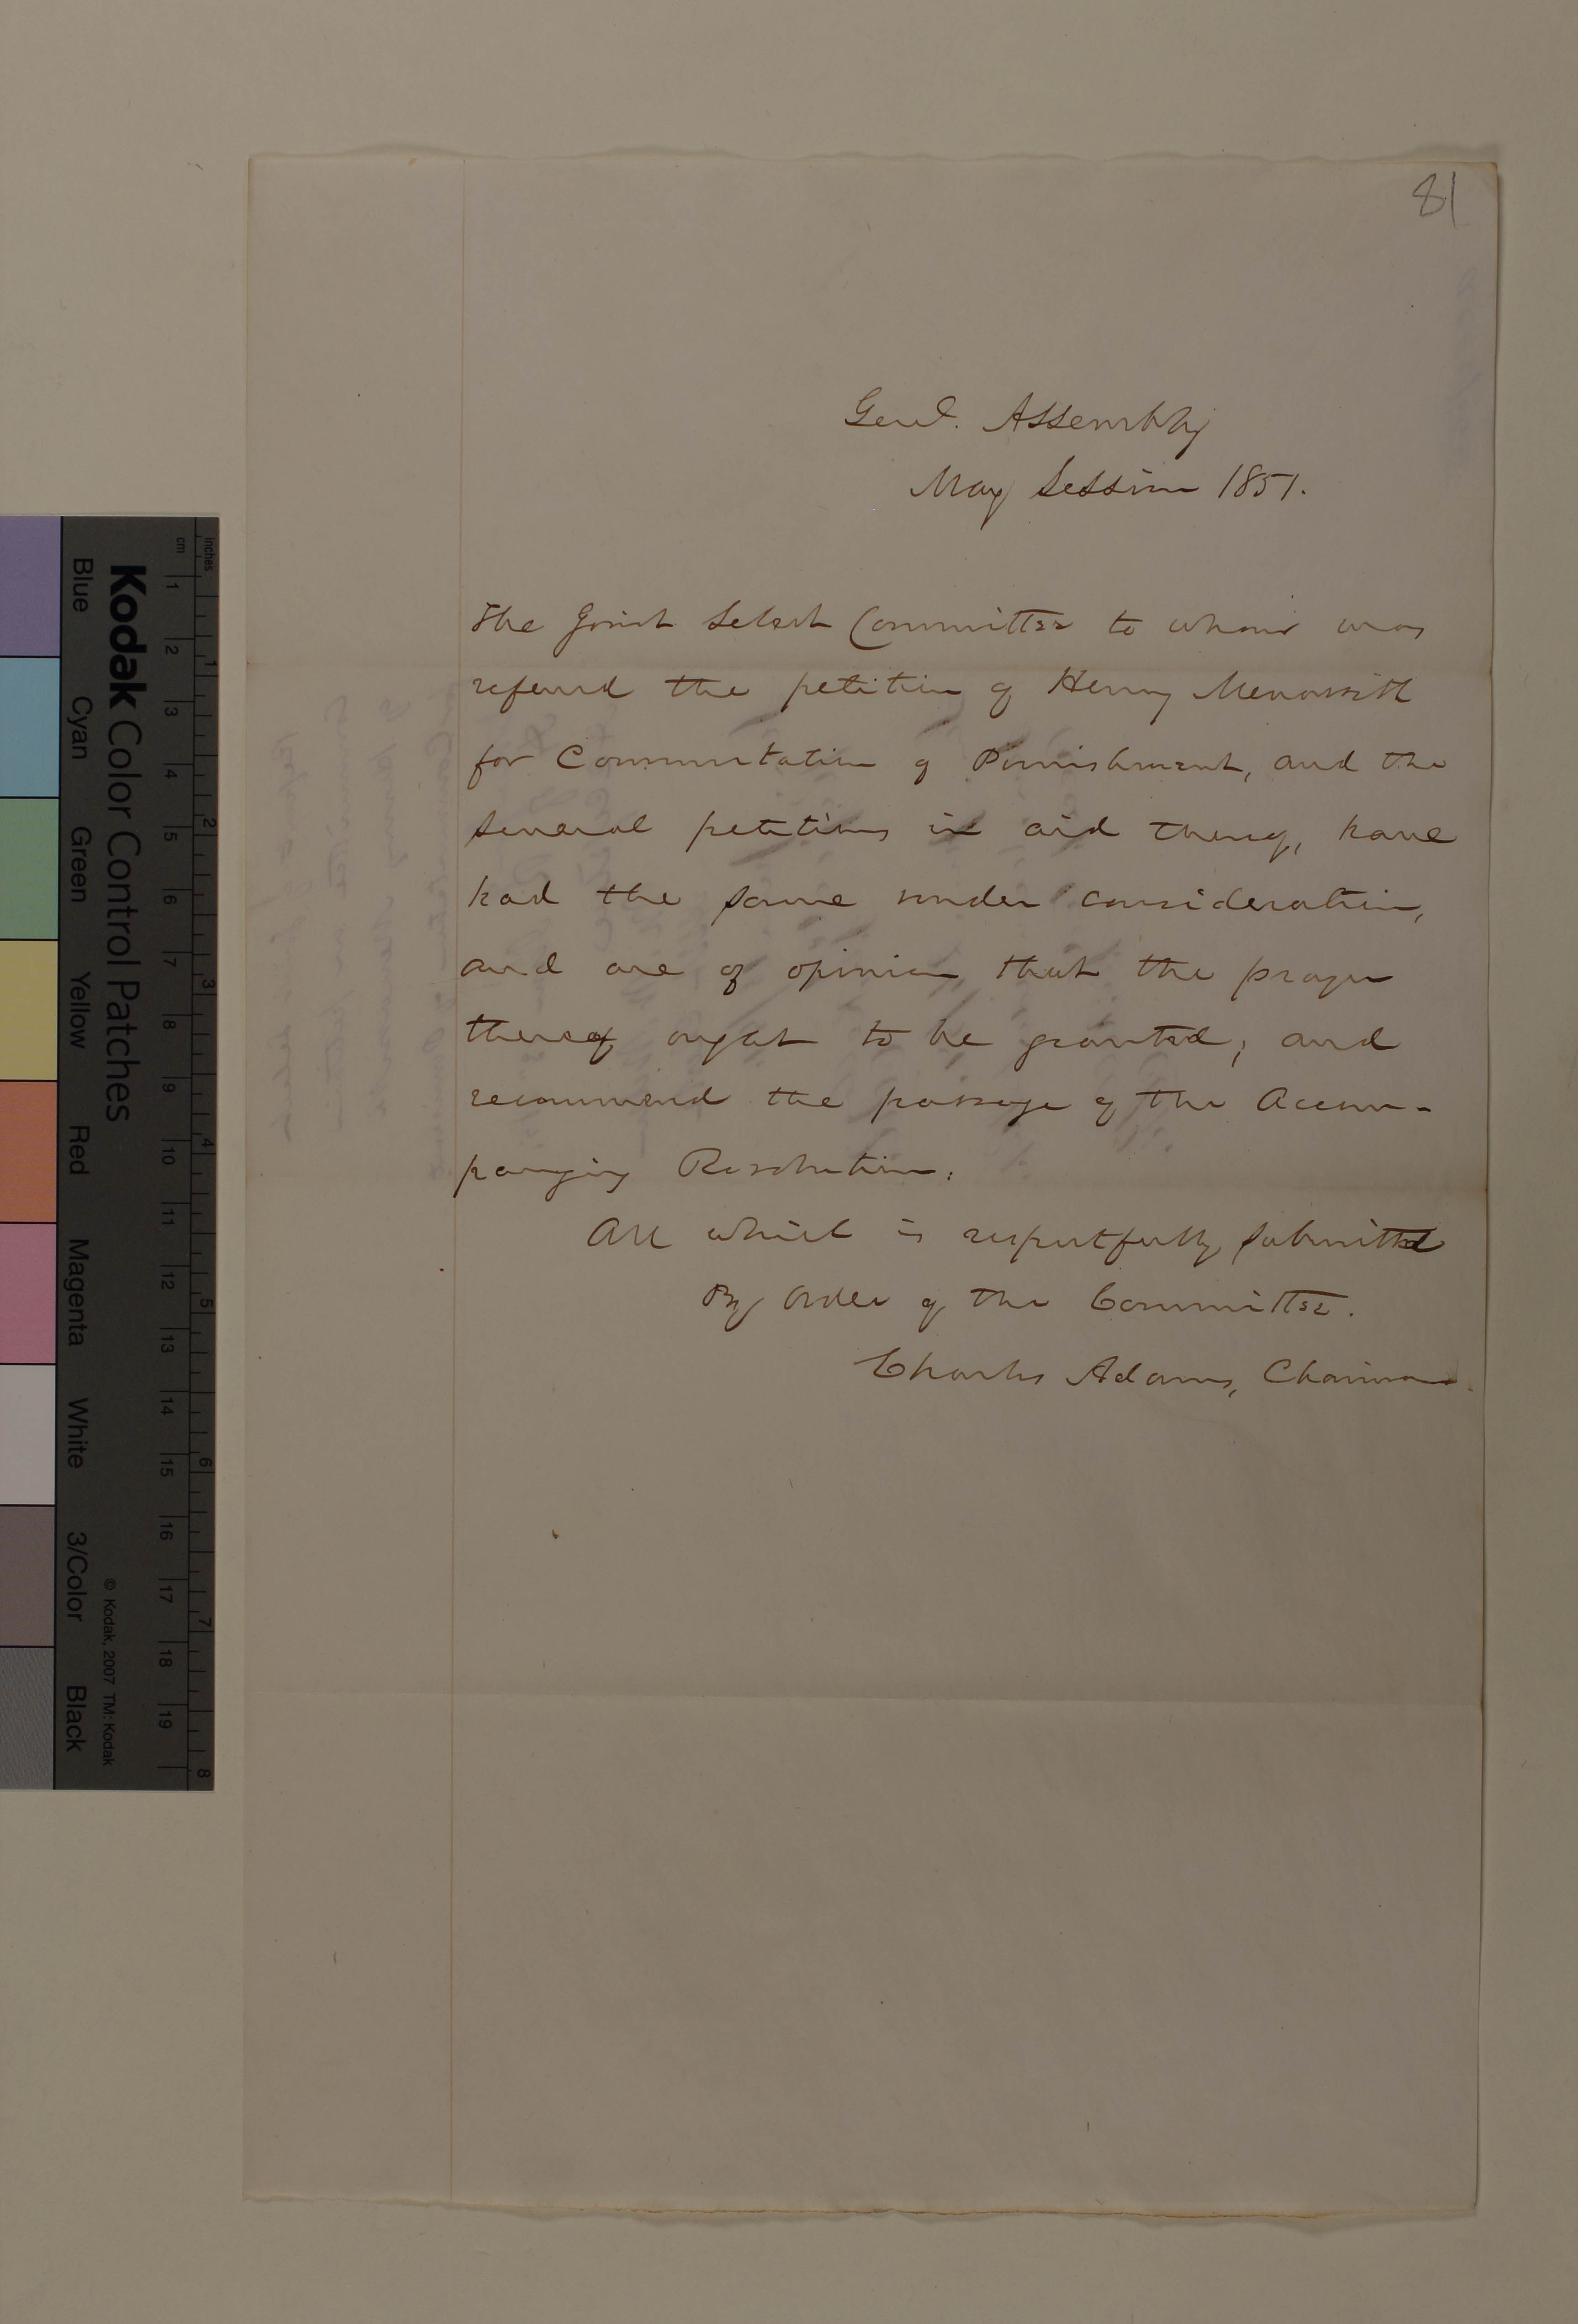 81
Genl. Assembly
May Session 1851.
The Joint Select Committee to whom was
referred the petition of Henry Menasseth
for Commutation of Punishment, and the
several petitions in aid thereof, have
had the same under consideration,
and are of opinion that the prayer
thereof ought to be granted; and
recommend the passage of the Accom-
panying Resolution.
All which is respectfully submitted
By Order of the Committee.
Charles Adams, Chairman.
inches
cm
1 2 3 4 5 6 7 8
1 2 3 4 5 6 7 8 9 10 11 12 13 14 15 16 17 18 19
Kodak Color Control Patches
© Kodak, 2007 TM: Kodak
Blue Cyan Green Yellow Red Magenta White 3/Color Black